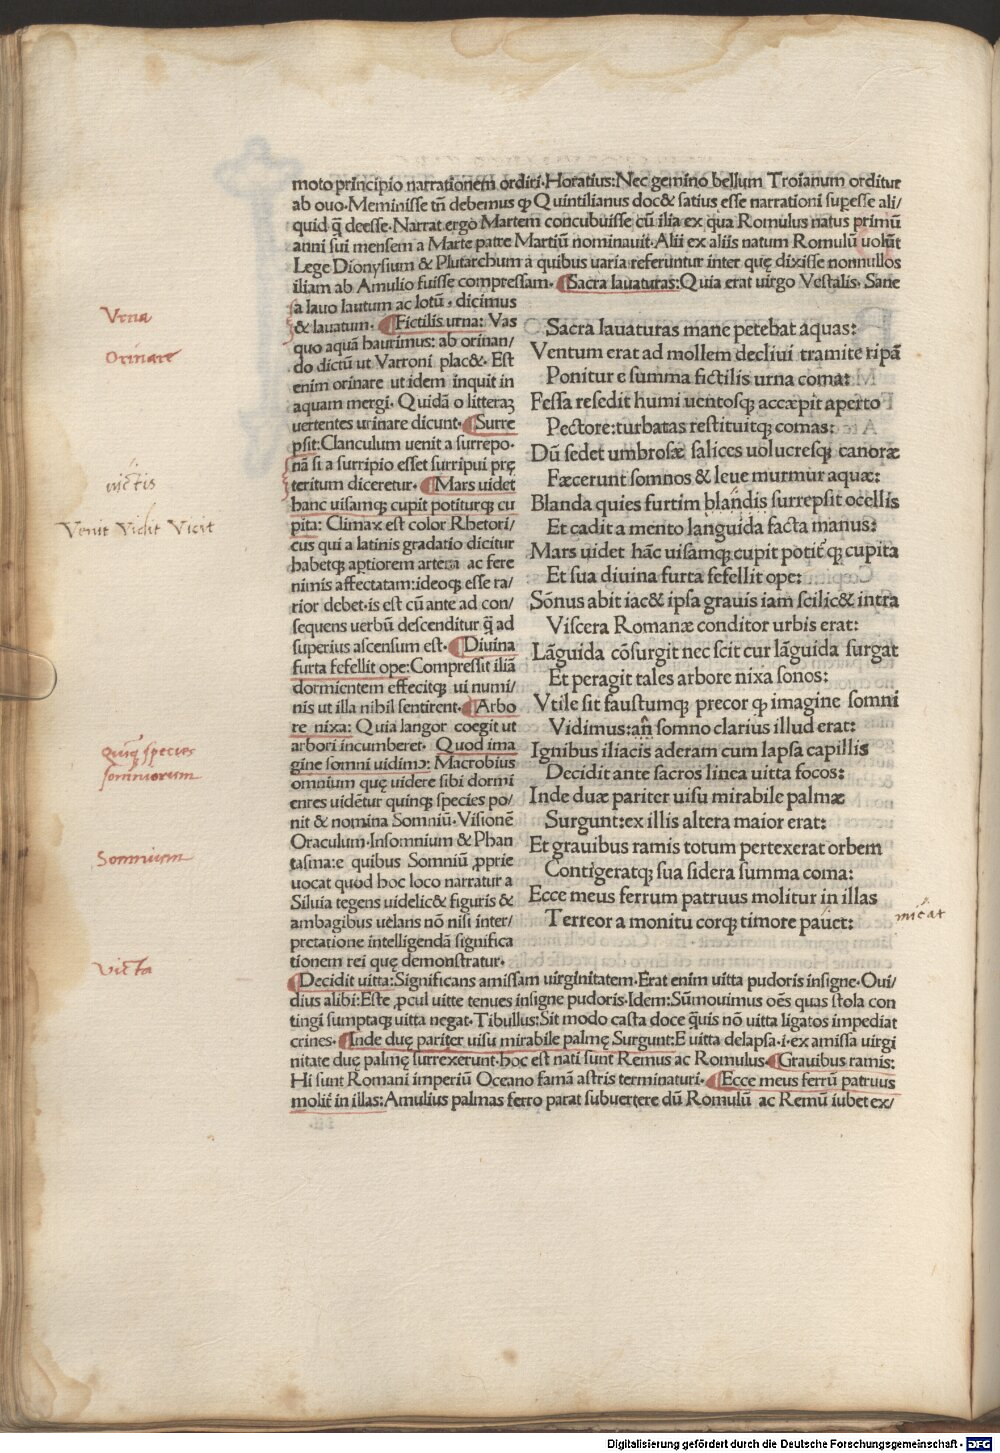 moto principio narrationem ordiri·Horatius:Nec gemino bellum Troianum orditur
ab ouo·Meminisse tñ debemus ꝙ Quintilianus doc& satius esse narrationi supesse ali/
quid q̃ deesse·Narrat ergo Martem concubuisse cũ ilia ex qua Romulus natus primũ
anni sui mensem a Marte patre Martiũ nominauit·Alii ex aliis natum Romulũ uolũt
Lege Dionysium & Plutarchum a quibus uaria referuntur inter quę dixisse nonnullos
iliam ab Amulio fuisse compressam· ¶Sacra lauaturas:Quia erat uirgo Vestalis· Sane
a lauo lautum ac lotũ, dicimus
& lauatum· ¶Fictilis urna: Vas
quo aquã haurimus: ab orinan/
do dictũ ut Varroni plac&· Est
enim orinare ut idem inquit in
aquam mergi· Quidã o litteraʒ
uertentes urinare dicunt·¶Surre
psit:Clanculum uenit a surrepo·
nã si a surripio esset surripui prę
teritum diceretur· ¶Mars uidet
hanc uisamqʒ cupit potiturqʒ cu
pita: Climax est color Rhetori/
cus qui a latinis gradatio dicitur
habetqʒ aptiorem artem ac fere
nimis affectatam:ideoqʒ esse ra/
rior debet·is est cũ ante ad con/
sequens uerbũ descenditur q̃ ad
superius ascensum est· ¶Diuina
furta fefellit ope:Compressit iliã
dormientem effecitqʒ ui numi/
nis ut illa nihil sentirent·¶Arbo
re nixa: Quia langor coegit ut
arbori incumberet· Quod ima
gine somni uidimꝰ: Macrobius
omnium quę uidere sibi dormi
entes uidẽtur quinqʒ species po/
nit & nomina Somniũ· Visionẽ
Oraculum·Insomnium & Phan
tasma:e quibus Somniũ ꝓprie
uocat quod hoc loco narratur a
Siluia tegens uidelic& figuris &
ambagibus uelans nõ nisi inter/
pretatione intelligendã significa
tionem rei quę demonstratur·
Sacra lauaturas mane petebat aquas:
Ventum erat ad mollem decliui tramite ripã
Ponitur e summa fictilis urna coma:
Fessa resedit humi uentosqʒ accæpit aperto
Pectore:turbatas restituitqʒ comas:
Dũ sedet umbrosæ salices uolucresqʒ canoræ
Fæcerunt somnos & leue murmur aquæ:
Blanda quies furtim blandis surrepsit ocellis
Et cadit a mento languida facta manus:
Mars uidet hãc uisamqʒ cupit potit᷑qʒ cupita
Et sua diuina furta fefellit ope:
Sõnus abit iac& ipsa grauis iam scilic& intra
Viscera Romanæ conditor urbis erat:
Lãguida cõsurgit nec scit cur lãguida surgat
Et peragit tales arbore nixa sonos:
Vtile sit faustumqʒ precor ꝙ imagine somni
Vidimus:añ somno clarius illud erat:
Ignibus iliacis aderam cum lapsa capillis
Decidit ante sacros linea uitta focos:
Inde duæ pariter uisu mirabile palmæ
Surgunt:ex illis altera maior erat:
Et grauibus ramis totum pertexerat orbem
Contigeratqʒ sua sidera summa coma:
Ecce meus ferrum patruus molitur in illas
Terreor a monitu corqʒ timore pauet:
¶Decidit uitta:Significans amissam uirginitatem·Erat enim uitta pudoris insigne·Oui/
dius alibi:Este ꝓcul uitte tenues insigne pudoris·Idem:Sũmouimus oẽs quas stola con
tingi sumptaqʒ uitta negat·Tibullus:Sit modo casta doce q̃uis nõ uitta ligatos impediat
crines·¶Inde duę pariter uisu mirabile palmę Surgunt:E uitta delapsa·i·ex amissa uirgi
nitate duę palmę surrexerunt·hoc est nati sunt Remus ac Romulus·¶Grauibus ramis:
Hi sunt Romani imperiũ Oceano famã astris terminaturi· ¶Ecce meus ferrũ patruus
molit᷑ in illas:Amulius palmas ferro parat subuertere dũ Romulũ ac Remũ iubet ex/
Vrna
Orinare
uictis
Venit Vidit Vicit
quinqʒ species
somniorum
Somnium
victa
micat
Digitalisierung gefördert durch die Deutsche Forschungsgemeinschaft · DFG